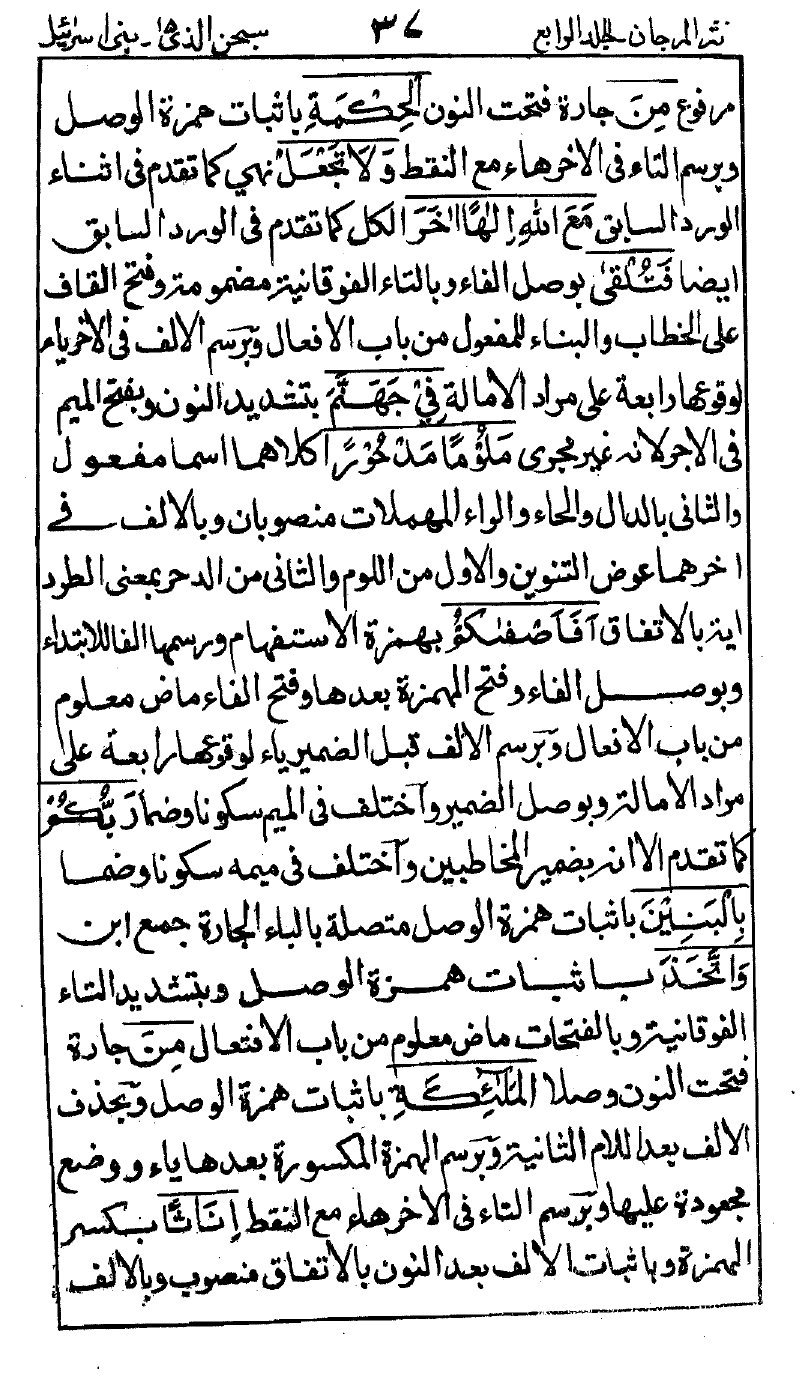 نثر المرجان الجلد الرابع ٣٧ سبحن الذى ١٥ بنى اسرائيل
مرفوع مِنَ جارة فتحت النون الْحِكْمَةِ باثبات همزة الوصل
وبرسم التاء فى الاخر هاء مع النقط وَلَا تَجْعَلْ نهي كما تقدم فى اثناء
الورد السابق مَعَ اللهِ اِلٰهًا اٰخَرَ الكل كما تقدم فى الورد السابق
ايضا فَتُلْقٰى بوصل الفاء وبالتاء الفوقانية مضمومة وفتح القاف
على الخطاب والبناء للمفعول من باب الافعال وبرسم الالف فى الاخر ياء
لوقوعها رابعة على مراد الامالة فِيْ جَهَنَّمَ بتشديد النون وبفتح الميم
فى الاجر لانه غير مجرى مَلُوْمًا مَدْحُوْرًا كلاهما اسما مفعول
والثانى بالدال والحاء والراء المهملات منصوبان وبالالف فے
اخرهما عوض التنوين والاول من اللوم والثانى من الدحر بمعنى الطرد
اية بالاتفاق اَفَاَصْفٰىكُمْ بهمزة الاستفهام ورسمها الفا للابتداء
وبوصل الفاء وفتح الهمزة بعدها وفتح الفاء ماض معلوم
من باب الافعال وبرسم الالف قبل الضمير ياء لوقوعها رابعة على
مراد الامالة وبوصل الضمير واختلف فى الميم سكونا وضما رَبُّكُمْ
كما تقدم الا انه بضمير المخاطبين واختلف فى ميمه سكونا وضما
بِالْبَنِيْنَ باثبات همزة الوصل متصلة بالباء الجارة جمع ابن
وَاتَّخَذَ باثبات همزة الوصل وبتشديد التاء
الفوقانية وبالفتحات ماض معلوم من باب الافتعال مِنَ جارة
فتحت النون وصلا الْمَلٰٓئِكَةِ باثبات همزة الوصل وبحذف
الالف بعد اللام الثانية وبرسم الهمزة المكسورة بعدها ياء ووضع
مجعودة عليها وبرسم التاء فى الاخر هاء مع النقط اِنَاثًا بكسر
الهمزة وباثبات الالف بعد النون بالاتفاق منصوب وبالالف